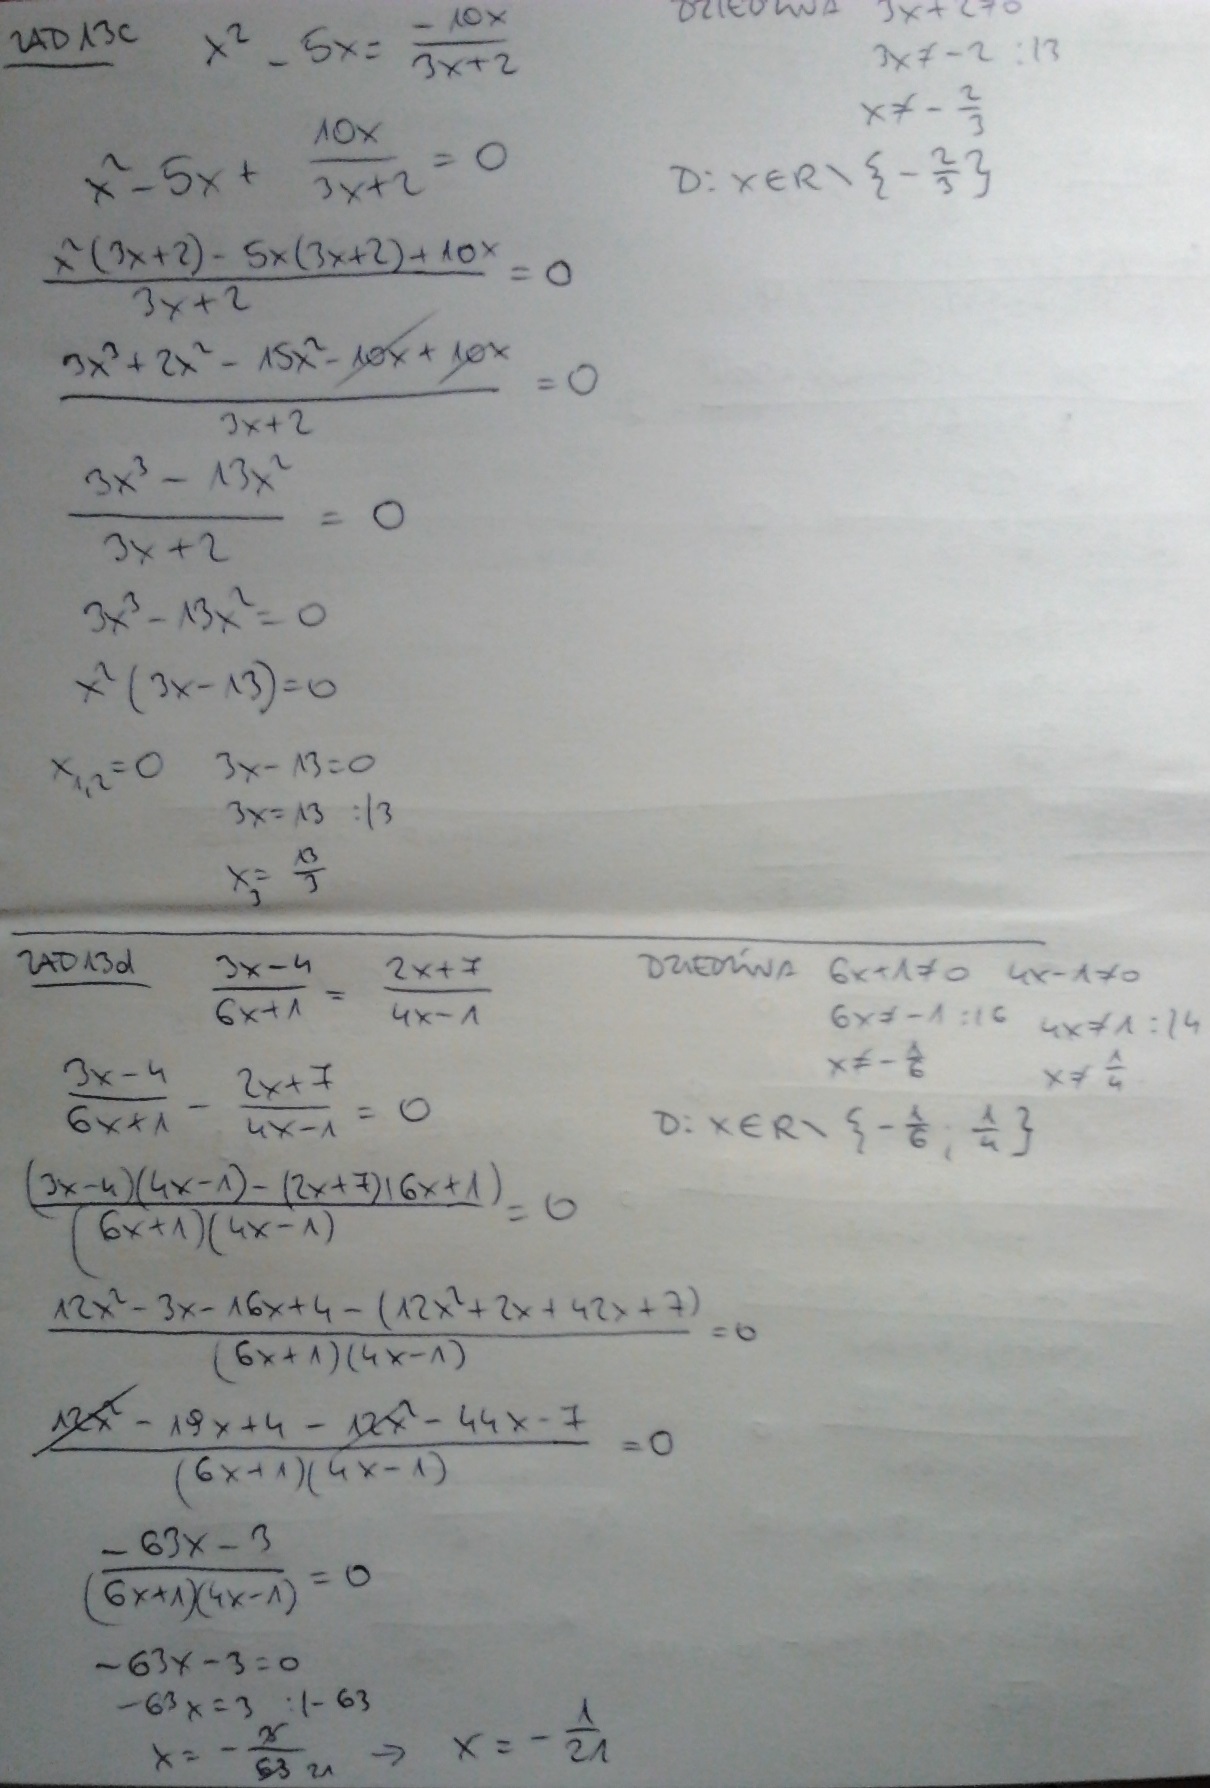 ZAD 13c x² - 5x = -10x/(3x+2) DZIEDZINA 3x+2≠0
3x≠-2 :|3
x≠-2/3
x² - 5x + 10x/(3x+2) = 0 D: x∈R\{-2/3}
(x²(3x+2) - 5x(3x+2) + 10x)/(3x+2) = 0
(3x³ + 2x² - 15x² - 10x + 10x)/(3x+2) = 0
(3x³ - 13x²)/(3x+2) = 0
3x³ - 13x² = 0
x²(3x-13) = 0
x₁,₂ = 0 3x-13=0
3x=13 :|3
x₃ = 13/3
ZAD 13d (3x-4)/(6x+1) = (2x+7)/(4x-1) DZIEDZINA 6x+1≠0 4x-1≠0
6x≠-1 :|6 4x≠1 :|4
x≠-1/6 x≠1/4
(3x-4)/(6x+1) - (2x+7)/(4x-1) = 0 D: x∈R\{-1/6; 1/4}
((3x-4)(4x-1) - (2x+7)(6x+1))/((6x+1)(4x-1)) = 0
(12x² - 3x - 16x + 4 - (12x² + 2x + 42x + 7))/((6x+1)(4x-1)) = 0
(12x² - 19x + 4 - 12x² - 44x - 7)/((6x+1)(4x-1)) = 0
(-63x - 3)/((6x+1)(4x-1)) = 0
-63x - 3 = 0
-63x = 3 :|-63
x = -3/63 21 → x = -1/21